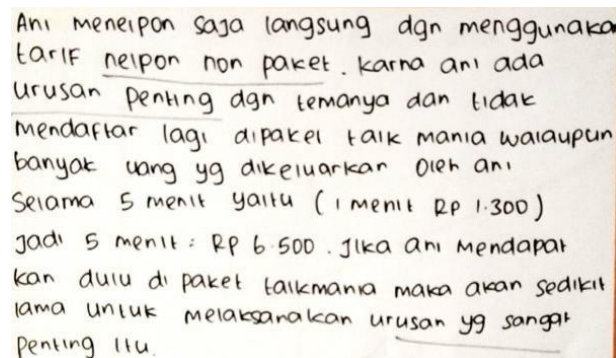 Ani menelpon saja langsung dgn menggunaka
tarif nelpon non paket. karna ani ada
urusan penting dgn temanya dan tidak
mendaftar lagi dipaket talk mania walaupun
banyak uang yg dikeluarkan oleh ani
Selama 5 menit yaitu (1 menit Rp 1.300)
Jadi 5 menit : Rp 6.500. Jika ani mendapat
kan dulu di paket talkmania maka akan sedikit
lama untuk melaksanakan urusan yg sangat
penting itu.